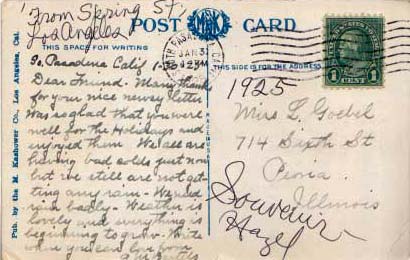 From Spring St,
Los Angeles
POST CARD
THIS SPACE FOR WRITING
THIS SIDE IS FOR THE ADDRESS
Pub. by the M. Kashower Co., Los Angeles, Cal.
So Pasadena Calif
Dear Friend. Many thanks
for your nice newsy letter
Was so glad that you were
well for the Holidays and
enjoyed them. We all are
having bad colds just now
but we still are not get-
ting any rain - We need
rain badly - Weather is
lovely and everything is
beginning to grow - Write
when you can. Love from
PASADENA
JAN 3
1 CENT 1
1925
Miss L. Goebel
714 Sixth St
Peoria
Illinois
Souvenir
Hazel